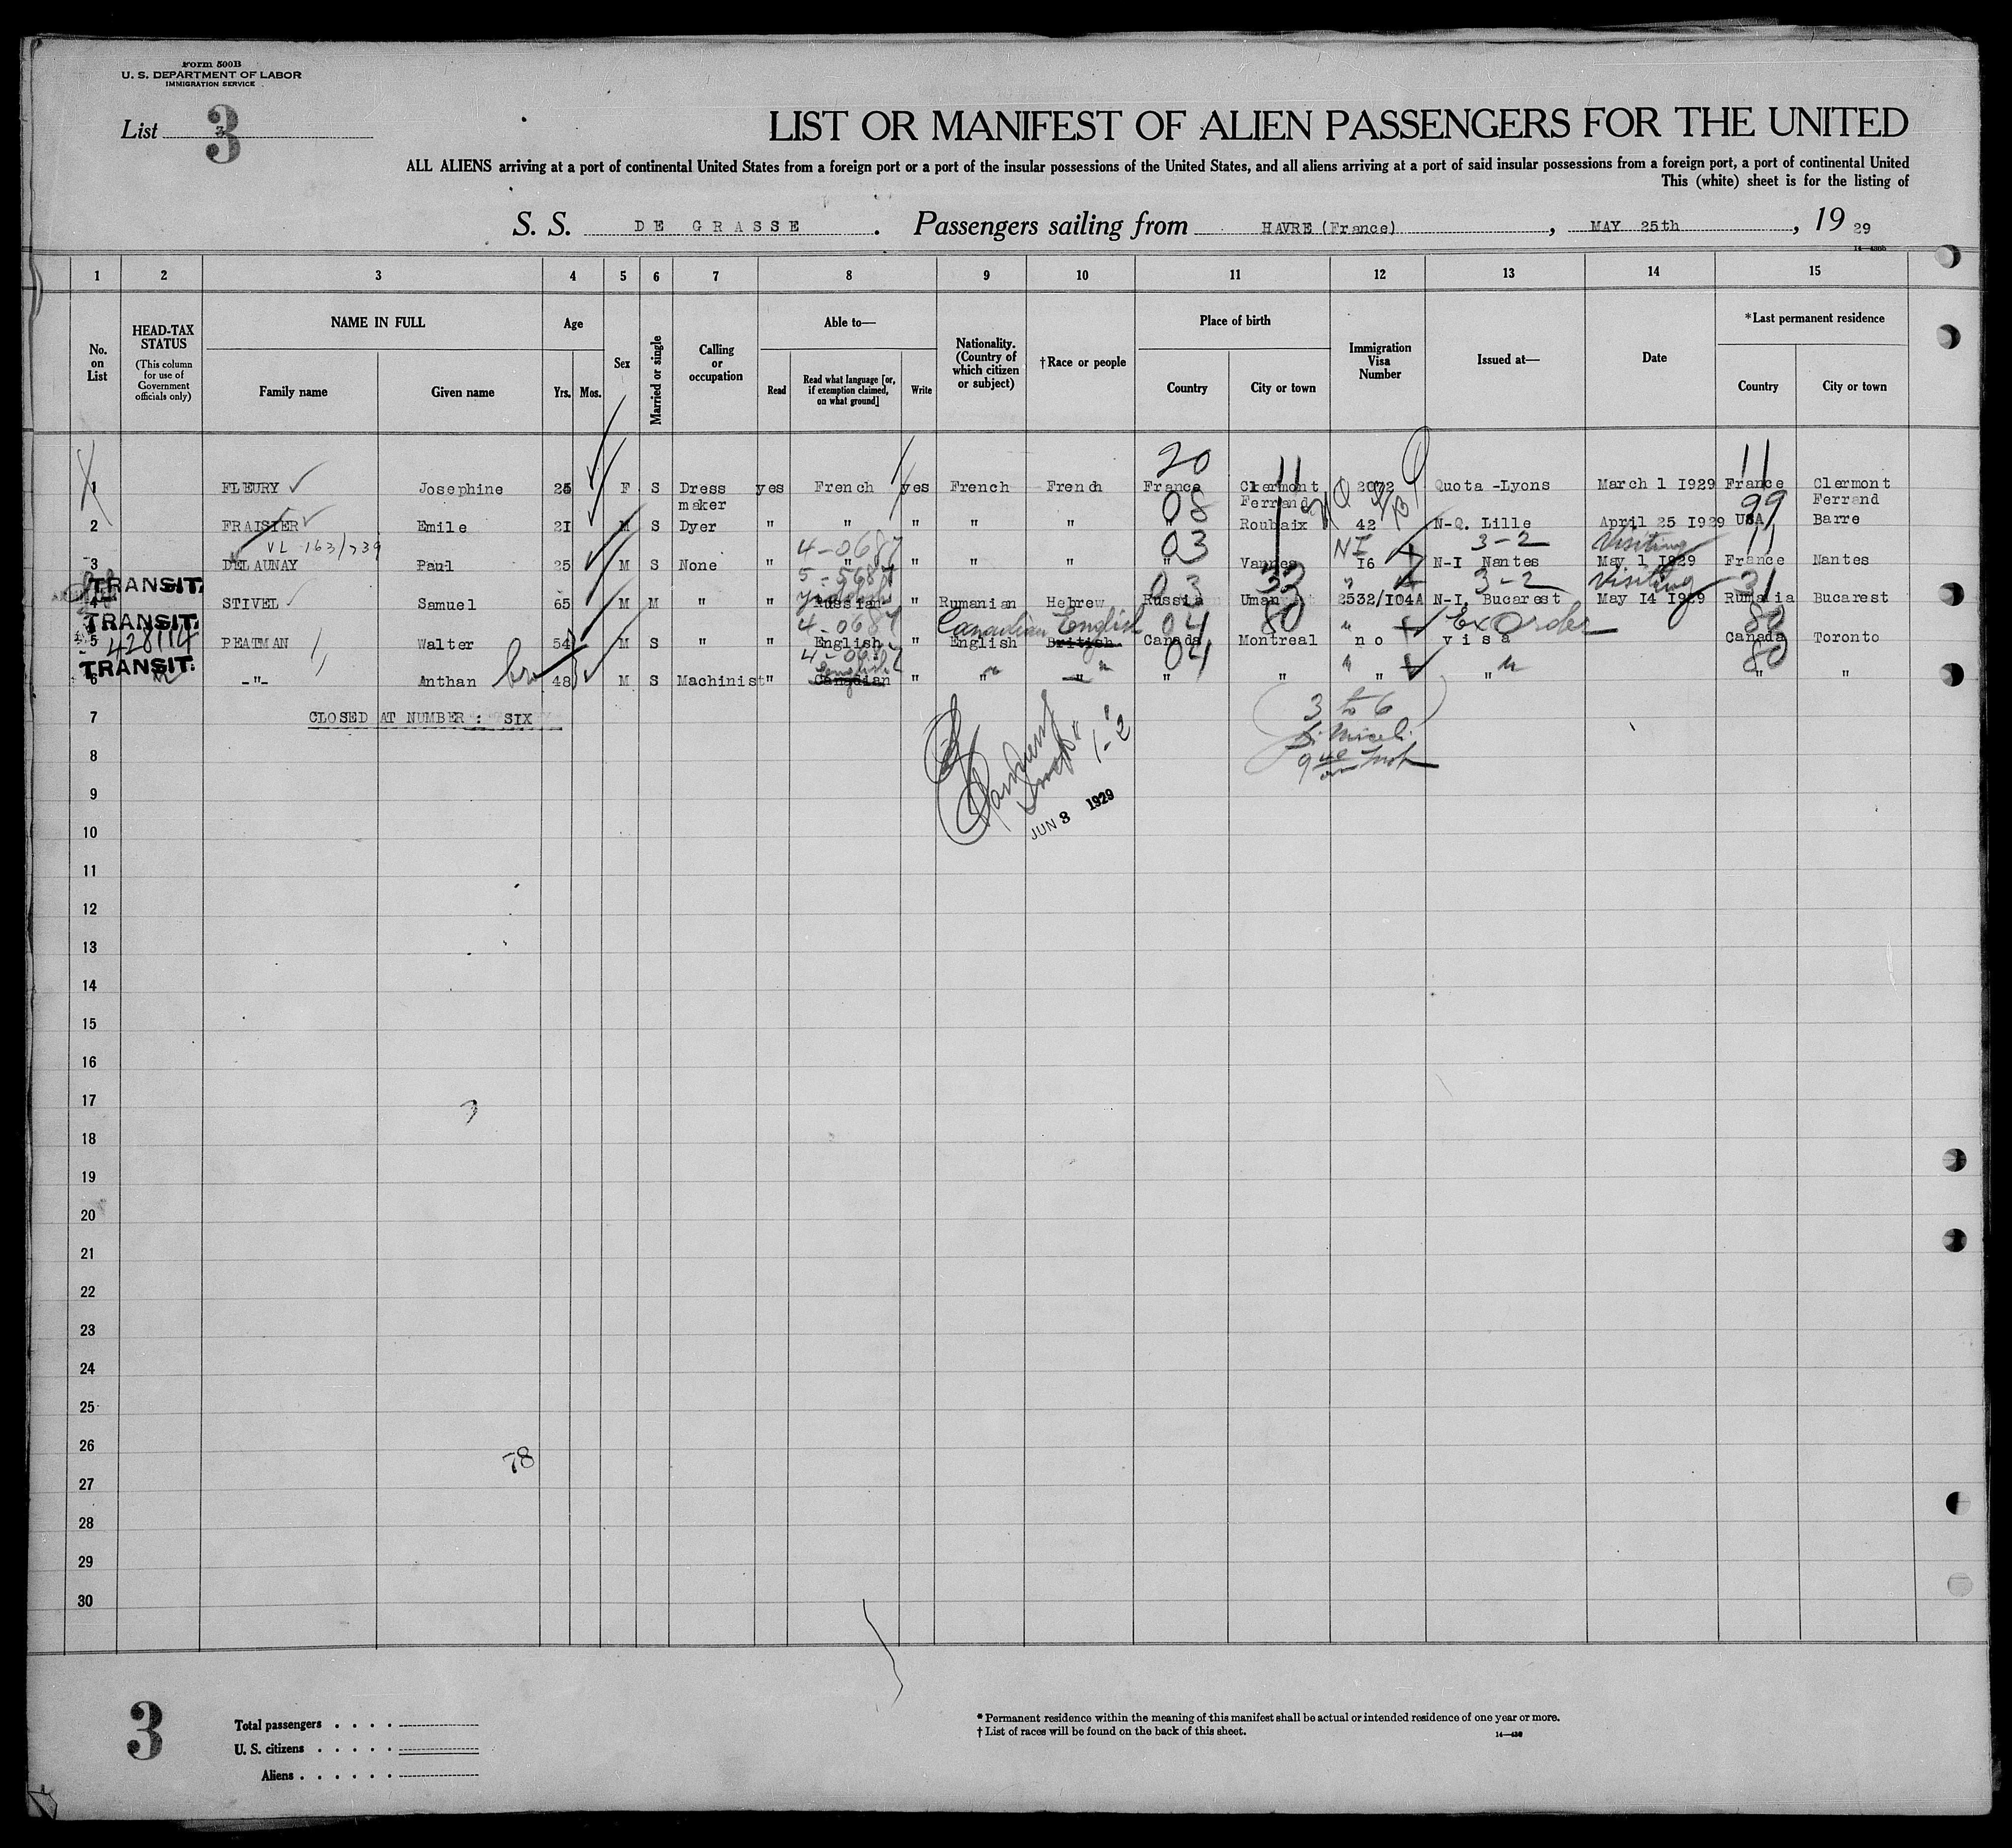 Form 500B
U. S. DEPARTMENT OF LABOR
IMMIGRATION SERVICE
List 3
3
LIST OR MANIFEST OF ALIEN PASSENGERS FOR THE UNITED
ALL ALIENS arriving at a port of continental United States from a foreign port or a port of the insular possessions of the United States, and all aliens arriving at a port of said insular possessions from a foreign port, a port of continental United
This (white) sheet is for the listing of
S. S. DE GRASSE . Passengers sailing from HAVRE (France) , MAY 25th , 19 29
1 2 3 4 5 6 7 8 9 10 11 12 13 14 15
No. on List
HEAD-TAX STATUS
(This column for use of Government officials only)
NAME IN FULL
Family name Given name
Age
Yrs. Mos.
Sex
Married or single
Calling or occupation
Able to—
Read Read what language [or, if exemption claimed, on what ground] Write
Nationality. (Country of which citizen or subject)
†Race or people
Place of birth
Country City or town
Immigration Visa Number
Issued at—
Date
*Last permanent residence
Country City or town
20 11 11
1 FLEURY Josephine F S Dress maker yes French yes French French France Clermont Ferrand 2072 Quota -Lyons March 1 1929 France Clermont Ferrand
08 99
2 FRAISIER Emile 21 M S Dyer " " " " " " Roubaix 42 N-Q. Lille April 25 1929 USA Barre
VL 163/739 4-0687 03 NI 3-2 Visiting 11
3 DELAUNAY Paul 25 M S None " " " " " " Vannes 16 N-I Nantes May 1 1929 France Nantes
TRANSIT. 5-5687 Yiddish 03 33 " 3-2 Visiting 31
4 STIVEL Samuel 65 M M " " Russian " Rumanian Hebrew Russia Uman 2532/104A N-I. Bucarest May 14 1929 Rumania Bucarest
TRANSIT. 4-0687 Canadian English 04 80 " Ex Order 80
428114
5 PEATMAN Walter 54 M S " " English " English British Canada Montreal no visa Canada Toronto
TRANSIT. 4-0687 English " " 04 " " 80
6 -"- Anthan bro 48 M S Machinist " Canadian " " " " " " " " "
7 CLOSED AT NUMBER : SIX
3 to 6
8
9
JUN 3 1929
10
11
12
13
14
15
16
17
18
19
20
21
22
23
24
25
26
78
27
28
29
30
3
Total passengers . . . .
U. S. citizens . . . . .
Aliens . . . . . .
* Permanent residence within the meaning of this manifest shall be actual or intended residence of one year or more.
† List of races will be found on the back of this sheet.